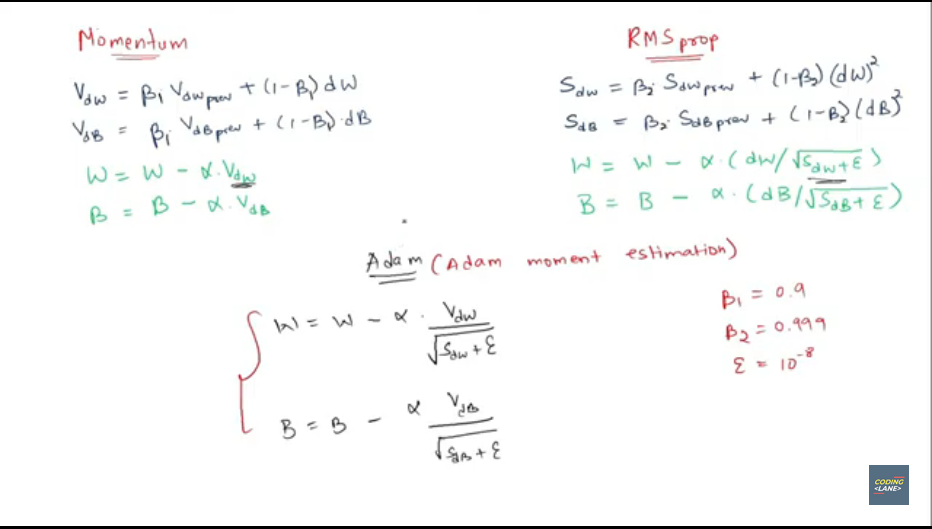 Momentum
V_dW = β₁ V_dW prev + (1-β₁) dW
V_dB = β₁ V_dB prev + (1-β₁)·dB
W = W - α·V_dW
B = B - α·V_dB
RMS prop
S_dW = β₂· S_dW prev + (1-β₂)(dW)²
S_dB = β₂· S_dB prev + (1-β₂)(dB)²
W = W - α·(dW/√(S_dW+ε))
B = B - α·(dB/√(S_dB+ε))
Adam (Adam moment estimation)
W = W - α · V_dW / √(S_dW + ε)
B = B - α V_dB / √(S_dB + ε)
β₁ = 0.9
β₂ = 0.999
ε = 10⁻⁸
CODING
<LANE>